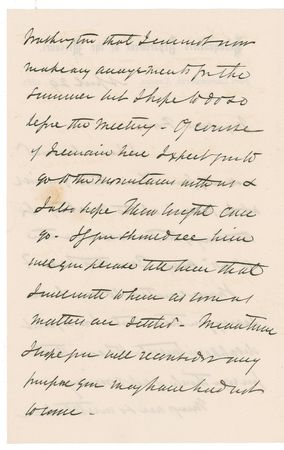 Washington that I cannot now
make any arrangements for the
Summer but I hope to do so
before the Meeting - Of course
if I remain here I expect you to
go to the mountains with us &
I also hope Theo Wright can
go - If you should see him
will you please tell him that
I will write to him as soon as
matters are settled - Meantime
I hope you will reconsider any
purpose you may have had not
to come -